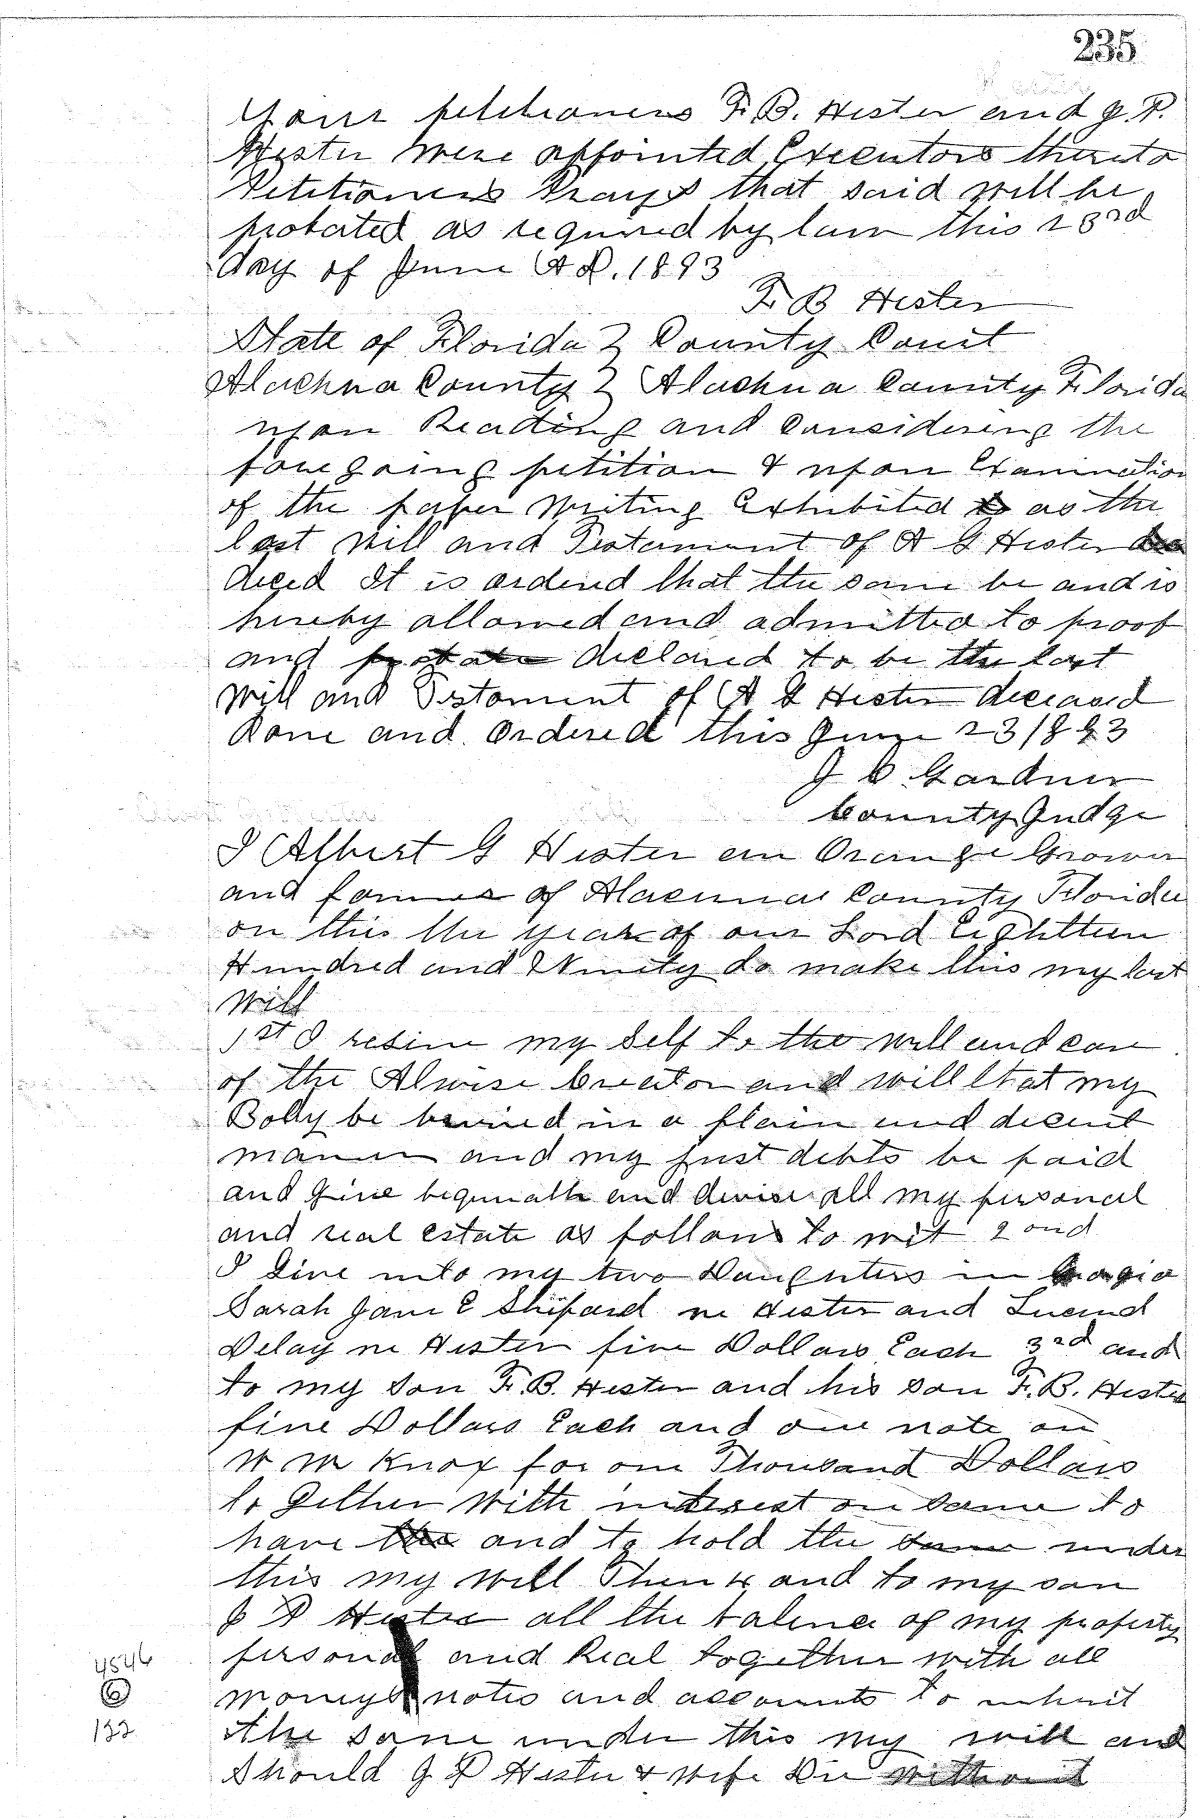 235
Your petitioners F. B. Hester and J. P.
Hester were appointed Executors thereto
Petitioners Prays that said will be
probated as required by law this 23rd
day of June A D. 1893
F B Hester
State of Florida } County Court
Alachua County } Alachua County Florida
upon Reading and Considering the
foregoing petition & upon Examination
of the paper writing Exhibited as the
last will and Testament of A G Hester
deced It is ordered that the same be and is
hereby allowed and admitted to proof
and probate declared to be the last
Will and Testament of A G Hester deceased
Done and Ordered this June 23 1893
J C Gardner
County Judge
I Albert G Hester an Orange Grower
and farmer of Alachua County Florida
on this the year of our Lord Eightteen
Hundred and Ninety do make this my last
Will
1st I resine my Self to the will and care
of the Alwise Creator and will that my
Body be burried in a plain and decent
manner and my just debts be paid
and give bequeath and devise all my personal
and real estate as follows to wit 2ond
I Give unto my two Daughters in Gorgia
Sarah Jane E Shipard ne Hester and Lucind
Delay ne Hester five Dollars Each 3rd and
to my son F. B. Hester and his son F. B. Hester
five Dollars Each and one note on
W M Knox for one Thousand Dollars
to Gether with interest on same to
have the and to hold the same under
this my will Then 4 and to my son
J P Hester all the balence of my property
personal and Real together with all
moneys notes and accounts to inherit
the same under this my will and
Should J P Hester & wife Die without
4546
6
122